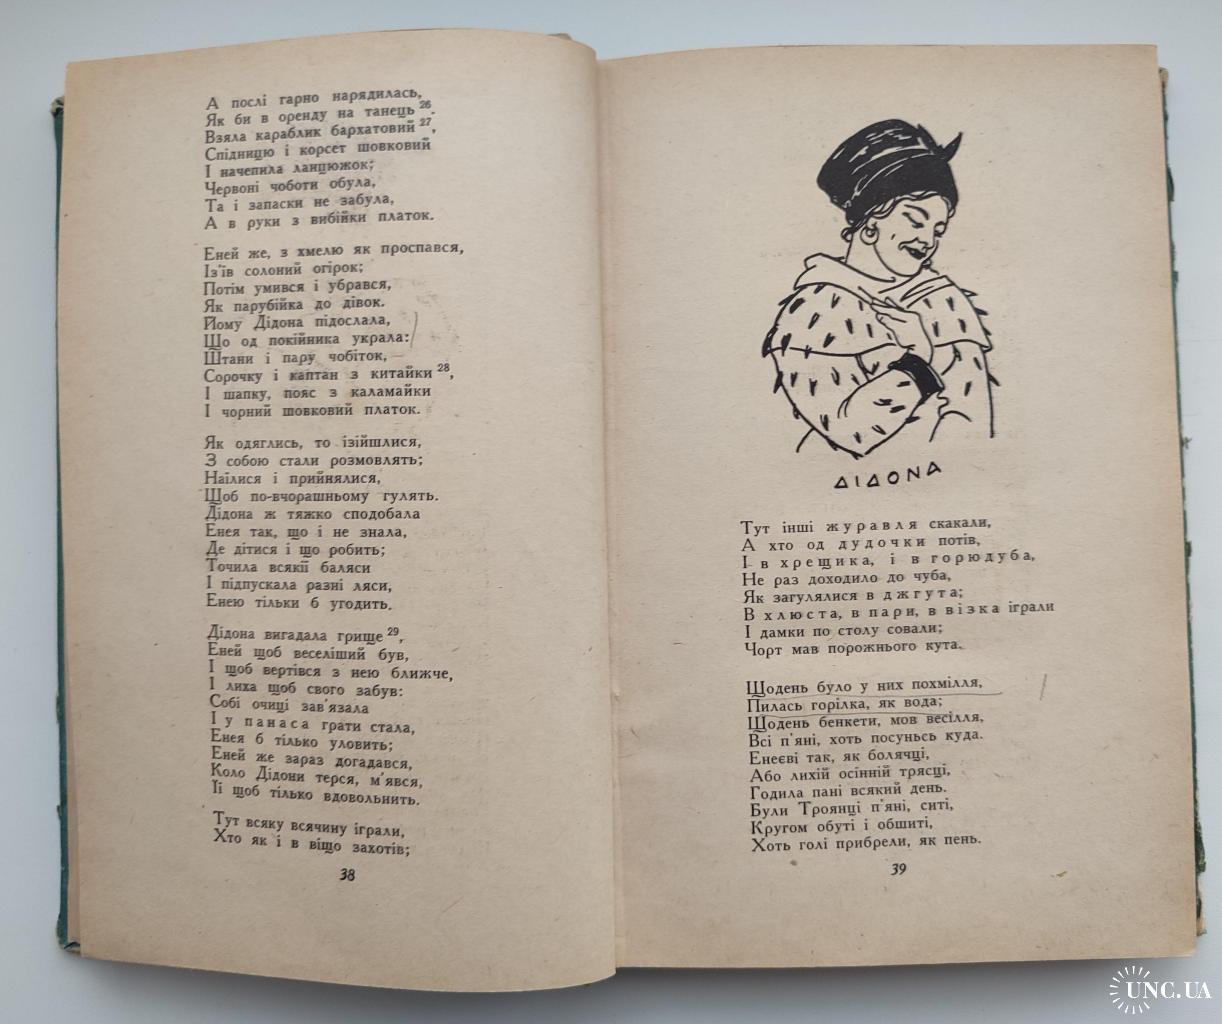 А послі гарно нарядилась,
Як би в оренду на танець 26.
Взяла караблик бархатовий 27,
Спідницю і корсет шовковий
І начепила ланцюжок;
Червоні чоботи обула,
Та і запаски не забула,
А в руки з вибійки платок.
Еней же, з хмелю як проспався,
Із'їв солоний огірок;
Потім умився і убрався,
Як парубійка до дівок.
Йому Дідона підослала,
Що од покійника украла:
Штани і пару чобіток,
Сорочку і каптан з китайки 28,
І шапку, пояс з каламайки
І чорний шовковий платок.
Як одяглись, то ізійшлися,
З собою стали розмовлять;
Наїлися і прийнялися,
Щоб по-вчорашньому гулять.
Дідона ж тяжко сподобала
Енея так, що і не знала,
Де дітися і що робить;
Точила всякії баляси
І підпускала разні ляси,
Енею тільки б угодить.
Дідона вигадала грище 29,
Еней щоб веселіший був,
І щоб вертівся з нею ближче,
І лиха щоб свого забув:
Собі очиці зав'язала
І у панаса грати стала,
Енея б тілько уловить;
Еней же зараз догадався,
Коло Дідони терся, м'явся,
Її щоб тілько вдовольнить.
Тут всяку всячину іграли,
Хто як і в віщо захотів;
38
ДІДОНА
Тут інші журавля скакали,
А хто од дудочки потів,
І в хрещика, і в горюдуба,
Не раз доходило до чуба,
Як загулялися в джгута;
В хлюста, в пари, в візка іграли
І дамки по столу совали;
Чорт мав порожнього кута.
Щодень було у них похмілля,
Пилась горілка, як вода;
Щодень бенкети, мов весілля,
Всі п'яні, хоть посуньсь куда.
Енеєві так, як болячці,
Або лихій осінній трясці,
Годила пані всякий день.
Були Троянці п'яні, ситі,
Кругом обуті і обшиті,
Хоть голі прибрели, як пень.
39
UNC.UA